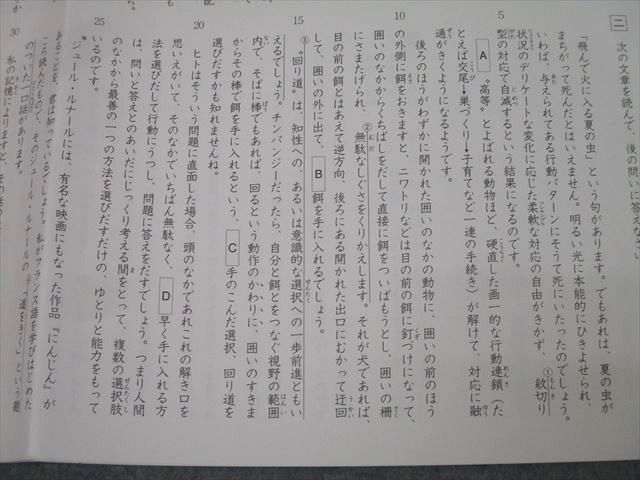 二 次の文章を読んで、後の問いに答
「飛んで火に入る夏の虫」という句があります。でもあれは、夏の虫が
まちがって死んだとはいえません。明るい光に本能的にひきよせられ、
いわば、与えられてある行動パターンにそうて死にいたったのでしょう。
状況のデリケートな変化に応じた柔軟な対応の自由がきかず、①紋切り
型の対応で自滅するという結果になるのです。
5
A “高等”とよばれる動物ほど、硬直した画一的な行動連鎖(た
とえば交尾→巣づくり→子育てなど一連の手続き)が解けて、対応に融
通がきくようになるようです。
後ろのほうがわずかに開かれた囲いのなかの動物に、囲いの前のほう
の外側に餌をおきますと、ニワトリなどは目の前の餌に釘づけになって、
10
囲いのなかからくちばしをだして直接に餌をついばもうとし、囲いの柵
にさまたげられ、②無駄なしぐさをくりかえします。それが犬であれば、
目の前の餌とはあえて逆方向、後ろにある開かれた出口にむかって迂回
して、囲いの外に出て、 B 餌を手に入れるでしょう。
③“回り道”は、知性への、あるいは意識的な選択への一歩前進ともい
15
えるでしょう。チンパンジーだったら、自分と餌とをつなぐ視野の範囲
内で、そばに棒でもあれば、回るという動作のかわりに、囲いのすきま
からその棒で餌を手に入れるという、 C 手のこんだ選択、回り道を
選びだすかも知れませんね。
ヒトはそういう問題に直面した場合、頭のなかであれこれの解き口を
20
思いえがいて、そのなかでいちばん無駄なく、 D 早く手に入れる方
法を選びだして行動にうつし、問題に答えをだすでしょう。つまり人間
は、問いと答えとのあいだにじっくり考える間をとって、複数の選択肢
のなかから最善の一つの方法を選びだすだけの、ゆとりと能力をもって
いるのです。
25
ジュール・ルナールには、有名な映画にもなった作品『にんじん』が
あることを、君は知っているでしょう。私がフランス語を学びはじめた
ころ読んだもので、そのジュール・ルナールの「道をきく」という題
のついた一口話があります。
私の記憶によりますと、
30